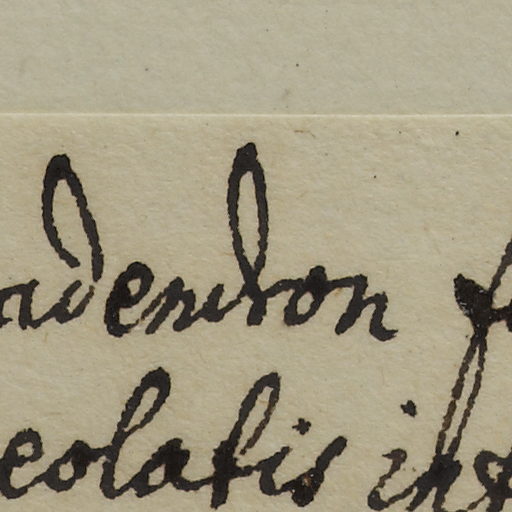 adendron f
eolatis int